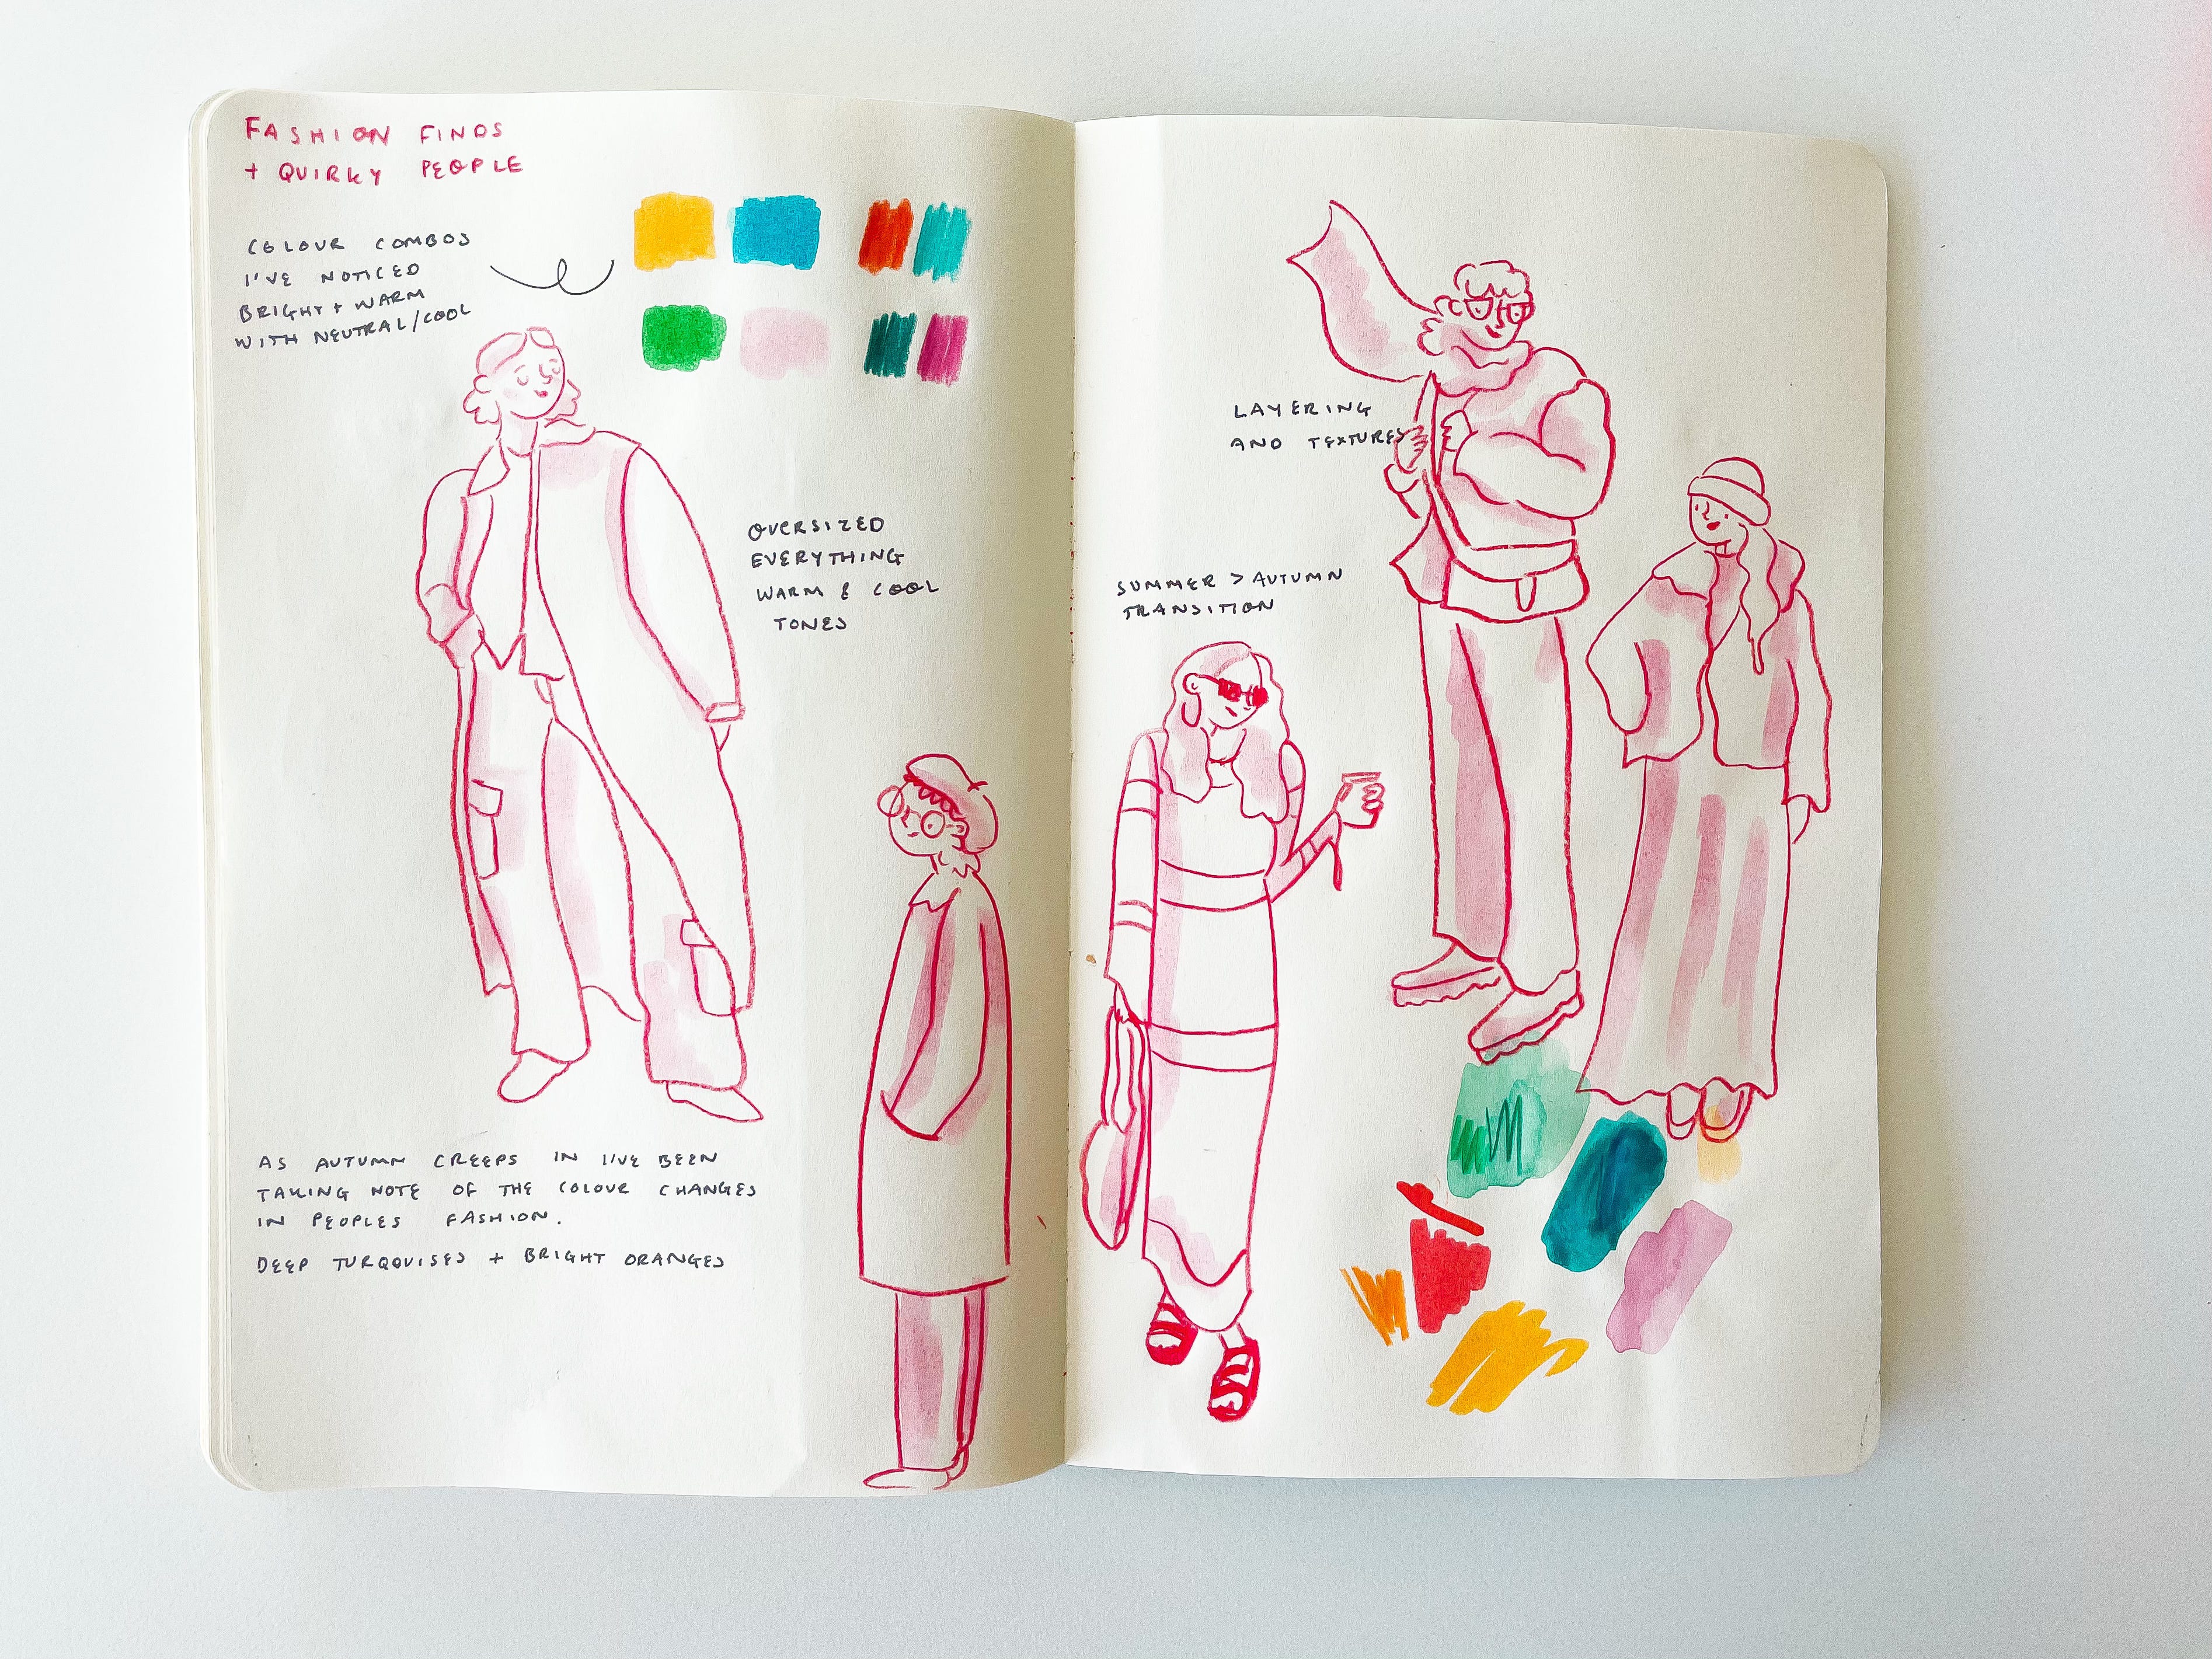 FASHION FINDS
+ QUIRKY PEOPLE
COLOUR COMBOS
I'VE NOTICED
BRIGHT + WARM
WITH NEUTRAL/COOL
OVERSIZED
EVERYTHING
WARM & COOL
TONES
AS AUTUMN CREEPS IN I'VE BEEN
TAKING NOTE OF THE COLOUR CHANGES
IN PEOPLES FASHION.
DEEP TURQOUISES + BRIGHT ORANGES
LAYERING
AND TEXTURES
SUMMER > AUTUMN
TRANSITION